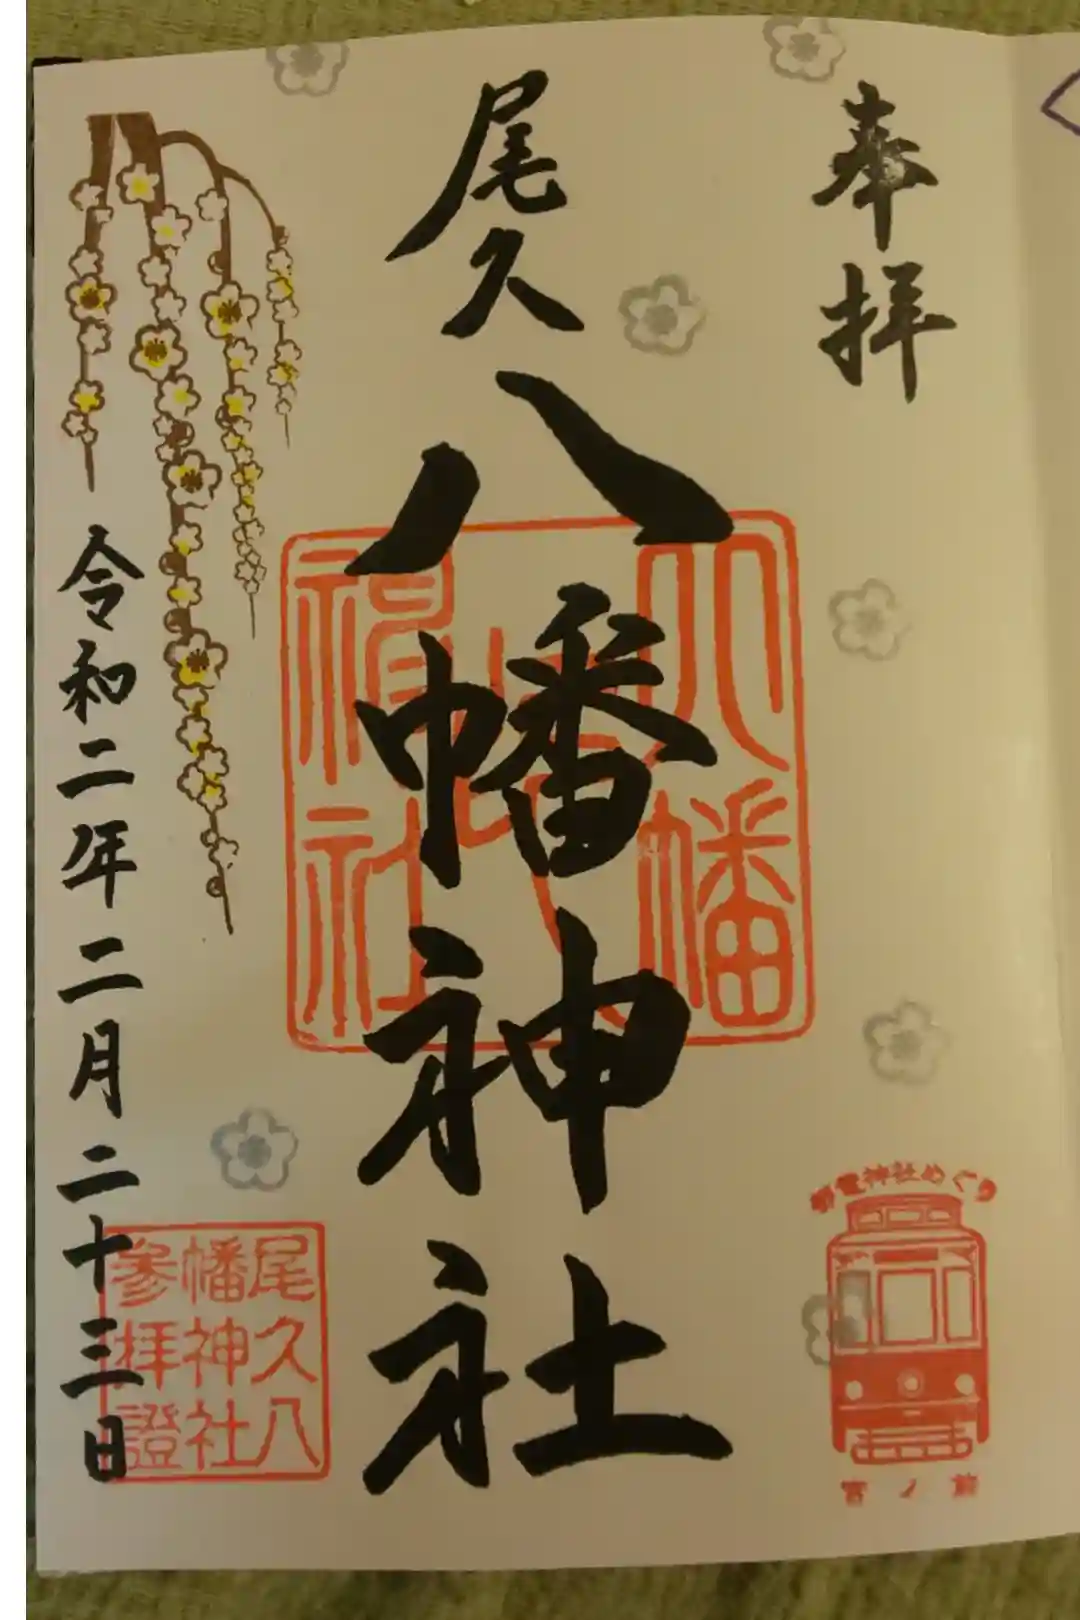 奉拝
尾久八幡神社
令和二年二月二十三日
八幡
神社
尾久八
幡神社
参拝證
都電神社めぐり
宮ノ前